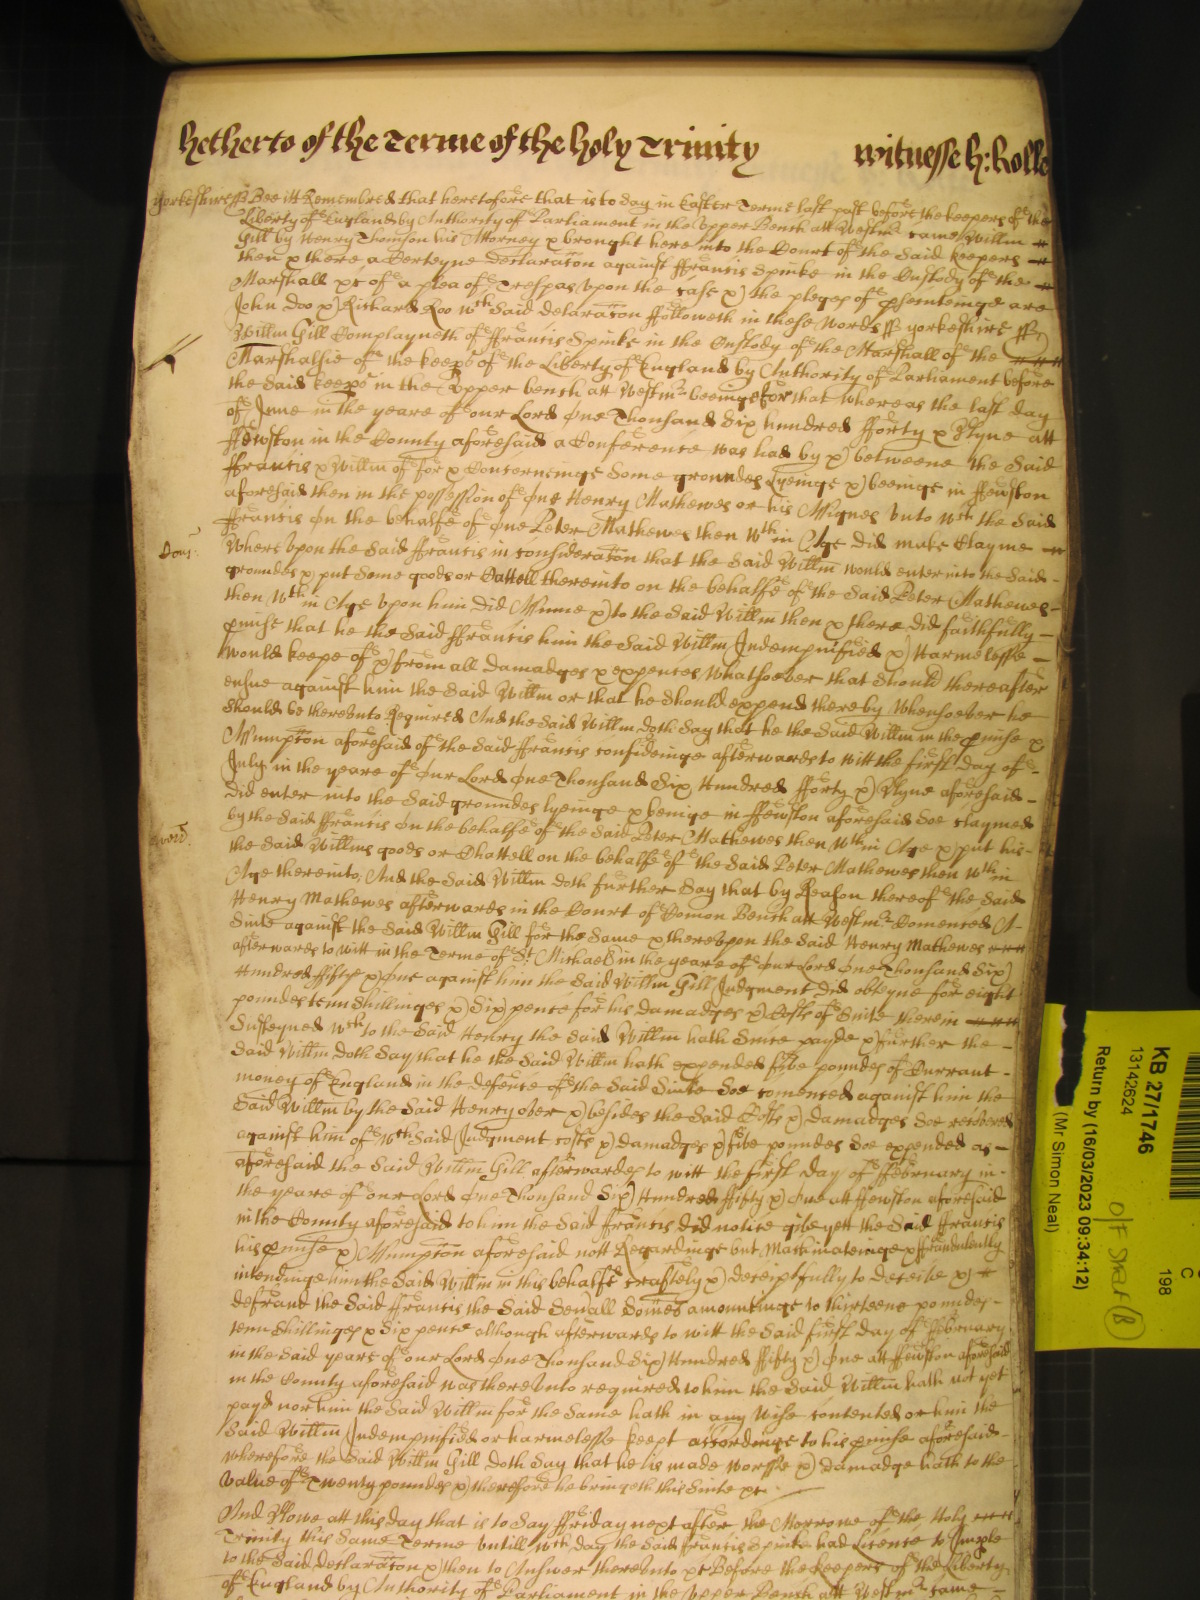 hetherto of the Terme of the holy Trinity witnesse h: Rolle
Yorkeshire ss Bee itt Remembred that heretofore that is to say in Easter Terme last past before the keepers of the
Liberty of England by Authority of Parliament in the Upper Bench att Westmr came Willm
Gill by Henry Thomson his Attorney & brought here into the Court of the said keepers
then & there a Certeyne declaracon against ffrancis Spinke in the Custody of the
Marshall &c of a plea of Trespas upon the case & the pleges of psecuteinge are
John Doo & Richard Roo wch said declaracon ffolloweth in these words ss yorkeshire ss
Willm Gill Complayneth of ffrancis Spinke in the Custody of the Marshall of the
Marshalsie of the keeps of the Liberty of England by Authority of Parliament before
the said keeps in the Upper bench att Westmr beeinge for that whereas the last day
of June in the yeare of our Lord One Thousand Six hundred fforty & Nyne att
ffewston in the County aforesaid a Conference was had by & betweene the said
ffrancis & Willm of for & Concerneinge some groundes lyeinge & beeinge in ffewston
aforesaid then in the possession of one Henry Mathewes or his Assignes unto wch the said
ffrancis on the behalfe of one Peter Mathewes then wthin Age did make Clayme
Whereupon the said ffrancis in consideracon that the said Willm would enter into the said
groundes & put some goods or Cattell thereinto on the behalfe of the said Peter Mathewes
then wthin Age upon him did Assume & to the said Willm then & there did faithfully
pmise that he the said ffrancis him the said Willm Indempnified & Harmelesse
would keepe of & from all damadges & expences whatsoever that should thereafter
ensue against him the said Willm or that he should expend thereby whensoever he
should be thereunto Required And the said Willm doth say that he the said Willm in the pmise &
Assumpcon aforesaid of the said ffrancis confideinge afterwards to witt the first day of
July in the yeare of our Lord One Thousand Six Hundred fforty & Nyne aforesaid
did enter into the said groundes lyeinge & beinge in ffewston aforesaid soe claymed
by the said ffrancis on the behalfe of the said Peter Mathewes then wthin Age & put his
the said Willms goods or Chattell on the behalfe of the said Peter Mathewes then wthin
Age thereinto, And the said Willm doth further say that by Reason thereof the said
Henry Mathewes afterwards in the Court of Comon Bench att Westmr Comenced A
Suite against the said Willm Gill for the same & thereupon the said Henry Mathewes
afterwards to witt in the Terme of St Michael in the yeare of our Lord One Thousand Six
Hundred ffiftye & One against him the said Willm Gill Judgment did obteyne for eight
poundes tenn shillinges & six pence for his damadges & Costs of Suite therein
Susteyned wch to the said Henry the said Willm hath since payde & further the
said Willm doth say that he the said Willm hath expended five poundes of Currant
money of England in the defence of the said Suite soe comenced against him the
said Willm by the said Henry over & besides the said Costs & damadges soe recovered
against him of wch said Judgment costs & damadges & five poundes soe expended as
aforesaid the said Willm Gill afterwardes to witt the first day of ffebruary in
the yeare of our Lord One Thousand Six Hundred ffifty & One att ffewston aforesaid
in the County aforesaid to him the said ffrancis did notice give yett the said ffrancis
his pmise & Assumpcon aforesaid nott Regardinge but Machinateinge & fraudulently
intendinge him the said Willm in this behalfe craftely & deceiptfully to deceive &
defraud the said ffrancis the said sevall somes amountinge to thirteene poundes
tenn shillinges & six pence although afterwards to witt the said first day of ffebruary
in the said yeare of our Lord One Thousand Six Hundred ffifty & One att ffewston aforesaid
in the County aforesaid was thereunto required to him the said Willm hath not yet
payd nor him the said Willm for the same hath in any wise contented or him the
said Willm Indempnified or harmelesse keept accordinge to his pmise aforesaid
wherefore the said Willm Gill doth say that he is made worsse & damadge hath to the
value of Twenty poundes & therefore he bringeth this Suite &c
And Nowe att this day that is to say ffriday next after the Morrowe of the Holy
Trinity this same Terme untill wch day the said ffrancis Spinke had Licence to Imple
to the said declaracon & then to Answer thereunto &c Before the keepers of the Liberty
of England by Authority of Parliament in the Upper Bench att Westmr came
KB 27/1746
13142624
Return by (16/03/2023 09:34:12)
(Mr Simon Neal)
C
198